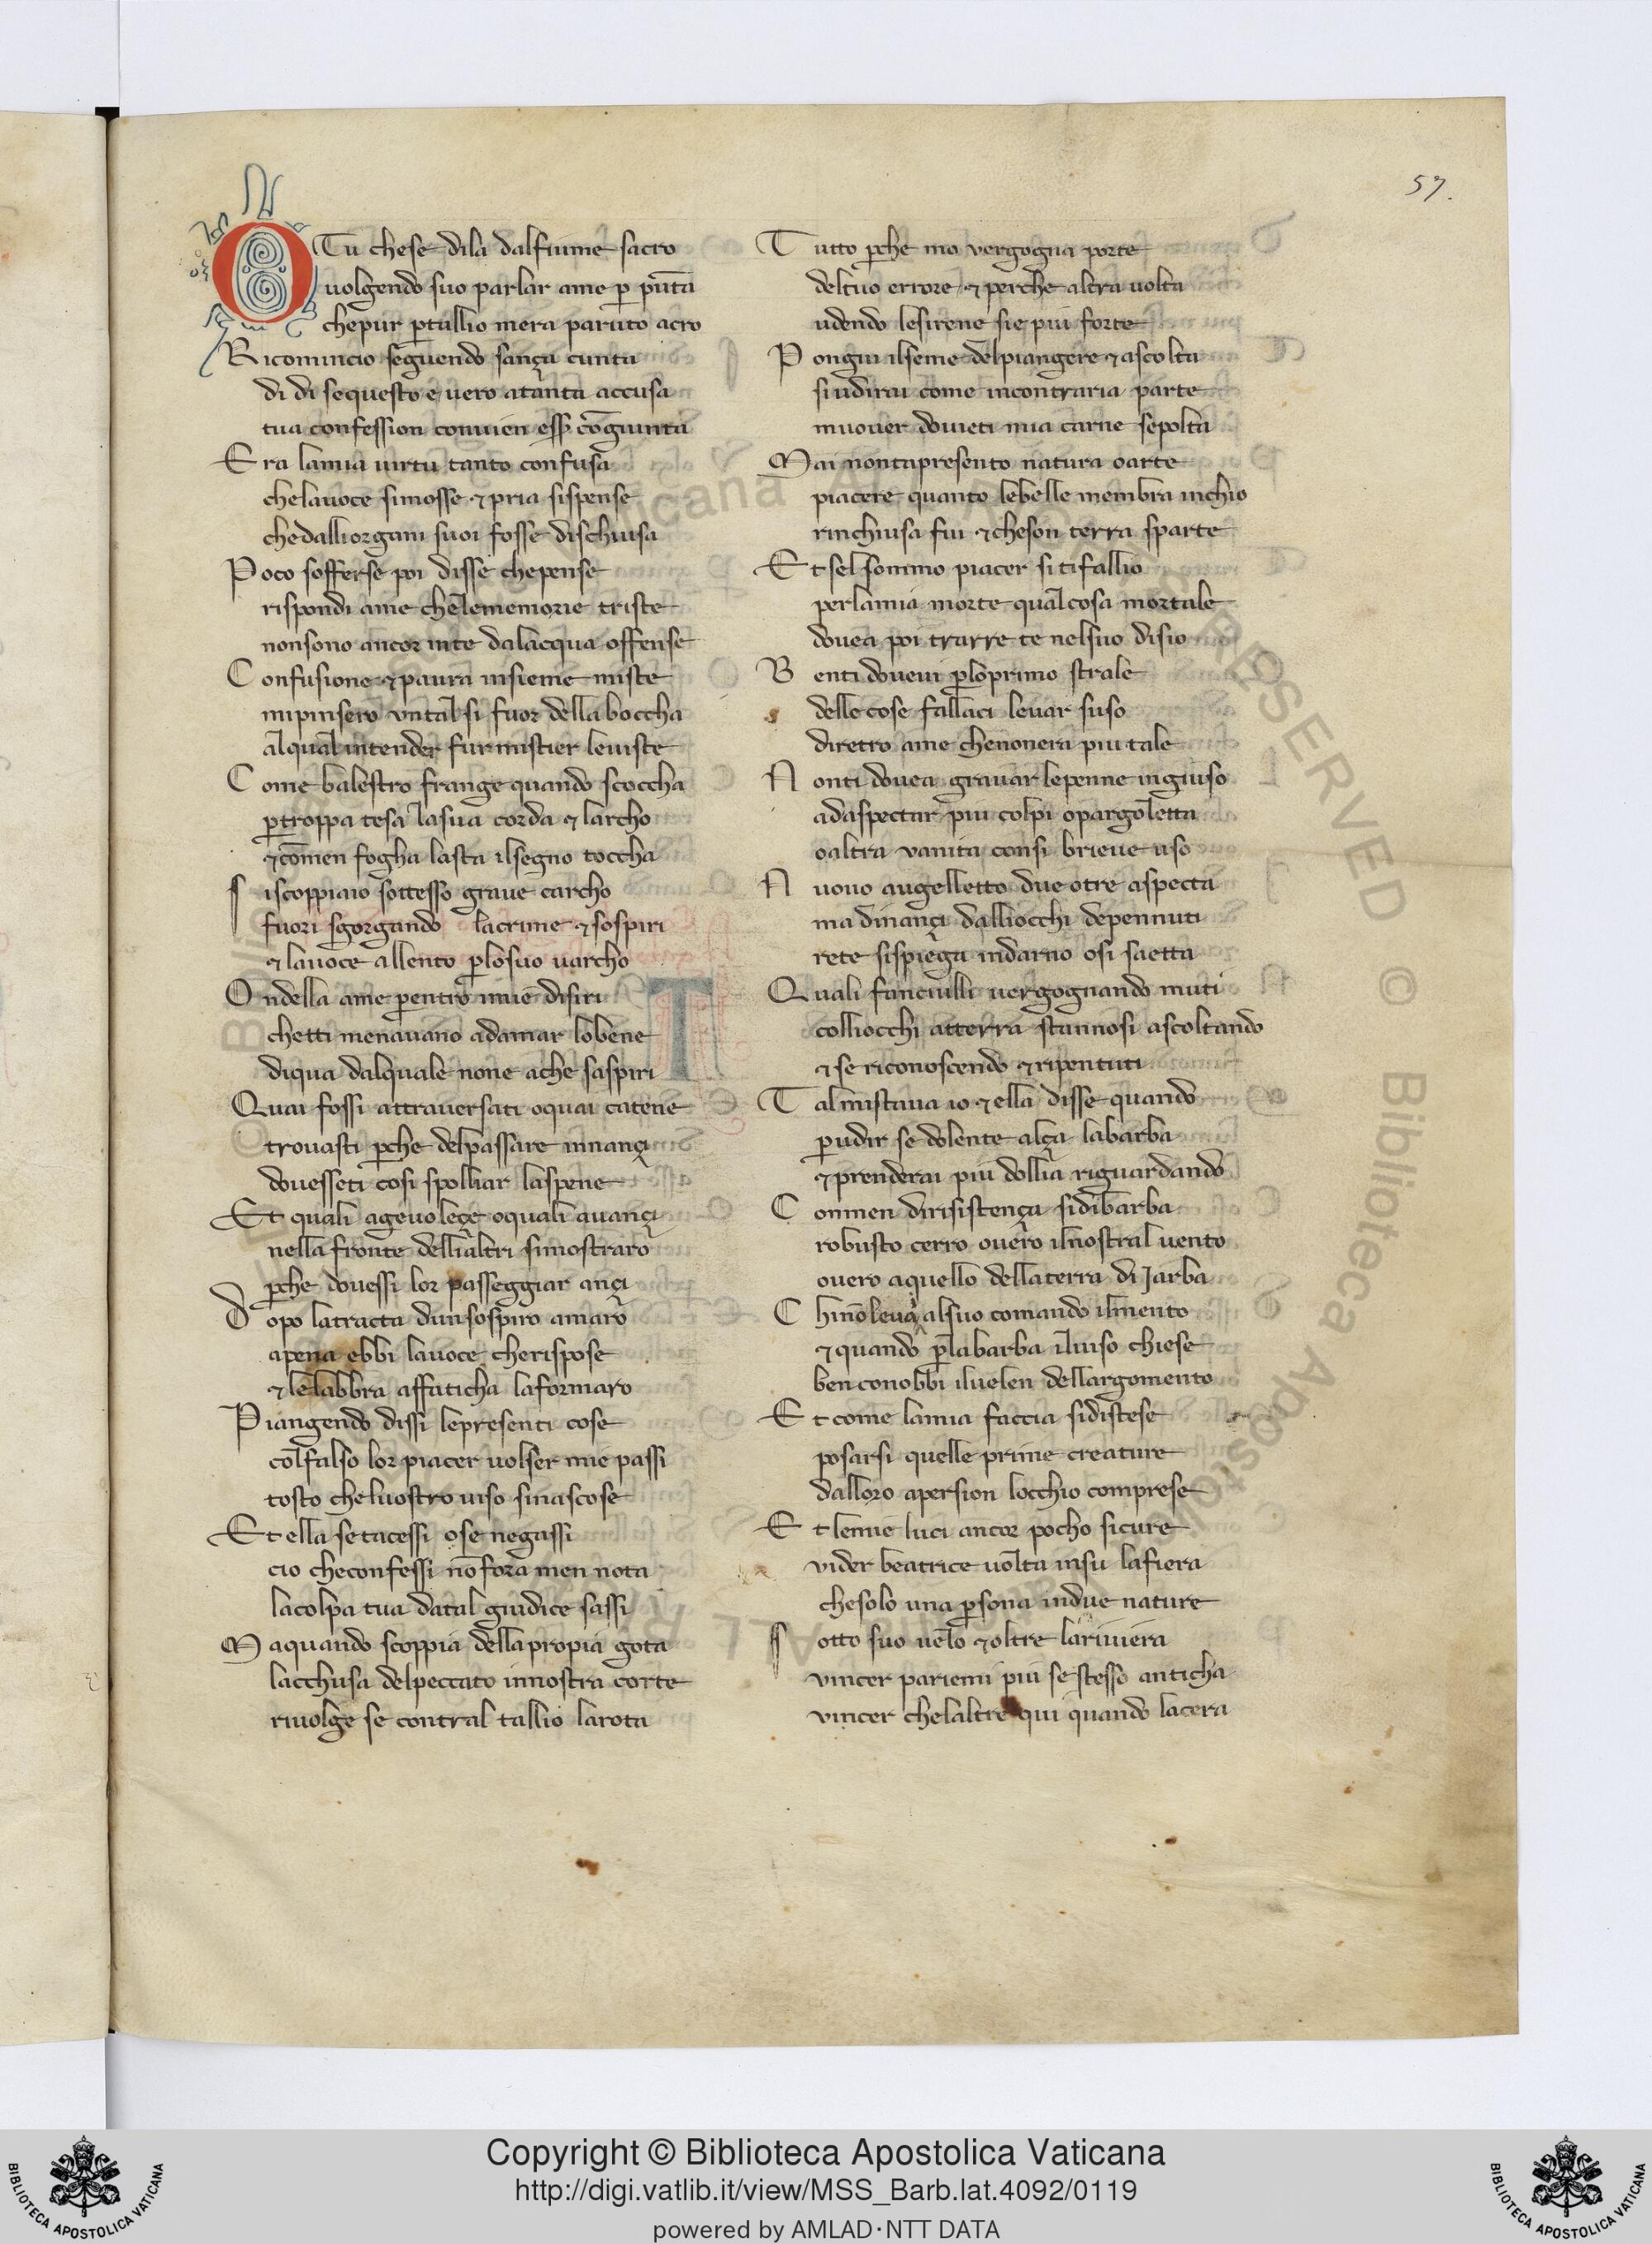 57.
O Tu chese dila dalfiume sacro
uolgendo suo parlar ame p̲ pu̅ta
chepur p̲tallio mera paruto acro
Ricomincio seguendo sança cunta
di di sequesto e uero atanta accusa
tua confession conuien ess̅ co̅giunta
Era lamia uirtu tanto confusa
chelauoce simosse ⁊ pria sispense
chedalliorgani suoi fosse dischiusa
Poco sofferse poi disse chepense
rispondi ame chelememorie triste
nonsono ancor inte dalacqua offense
Confusione ⁊ paura insieme miste
mipinsero untal si fuor della boccha
alqual intender fur mistier leuiste
Come balestro frange quando scoccha
p̲troppa tesa lasua corda ⁊ larcho
⁊ co̅men fogha lasta ilsegno toccha
Siscoppiaio sottesso graue carcho
fuori sgorgando lacrime ⁊ sospiri
⁊ lauoce allento p̲losuo uarcho
Ondella ame p̲entro imie disiri
chetti menauano adamar lobene
diqua dalquale none ache saspiri
Quai fossi attrauersati oquai catene
trouasti p̲che delpassare innançi
douesseti cosi spolliar laspene
Et quali ageuoleçe oquali auançi
nella fronte dellialtri simostraro
p̲che douessi lor passeggiar ançi
Dopo latracta dunsospiro amaro
apena ebbi lauoce cherispose
⁊ lelabbra affaticha laformaro
Piangendo dissi lepresenti cose
colfalso lor piacer uolser mie passi
tosto cheluostro uiso sinascose
Et ella setacessi ose negassi
cio checonfessi no̅ fora men nota
lacolpa tua datal giudice sassi
Maquando scoppia dellapropia gota
lacchusa delpeccato innostra corte
riuolge se contral tallio larota
Tutto p̲che mo vergogna porte
deltuo errore ⁊ perche altra uolta
udendo lesirene sie piu forte
Pongiu ilseme delpiangere ⁊ ascolta
siudirai come incontraria parte
muouer doueti mia carne sepolta
Mai nontapresento natura oarte
piacere quanto lebelle membra inchio
rinchiusa fui ⁊ cheson terra sparte
Et sel sommo piacer si tifallio
perlamia morte qual cosa mortale
douea poi trarre te nelsuo disio
Benti doueui p̲loprimo strale
delle cose fallaci leuar suso
diretro ame chenonera piu tale
Nonti douea grauar lepenne ingiuso
adaspectar piu colpi opargoletta
oaltra vanita consi brieue uso
Nuouo augelletto due otre aspecta
ma dinançi dalliocchi depennuti
rete sispiega indarno osi saetta
Quali fanciulli uergognando muti
colliocchi atterra stannosi ascoltando
⁊ se riconoscendo ⁊ ripentuti
Talmistaua io ⁊ ella disse quando
p̲udir se dolente alça labarba
⁊ prenderai piu dollia riguardando
Conmen dirisistença sidibarba
robusto cerro ouero ilnostral uento
ouero aquello dellaterra di Jarba
Chino̅ leuai alsuo comando ilmento
⁊ quando p̲labarba iluiso chiese
ben conobbi iluelen dellargomento
Et come lamia faccia sidistese
posarsi quelle prime creature
dalloro apersion locchio comprese
Et lemie luci ancor pocho sicure
vider beatrice uolta insu lafiera
chesolo una p̲sona indue nature
Sotto suo uelo ⁊ oltre lariuiera
vincer pariemi piu sestesso anticha
vincer chelaltre qui quando lacera
Copyright © Biblioteca Apostolica Vaticana
http://digi.vatlib.it/view/MSS_Barb.lat.4092/0119
powered by AMLAD·NTT DATA
BIBLIOTECA APOSTOLICA VATICANA
BIBLIOTECA APOSTOLICA VATICANA